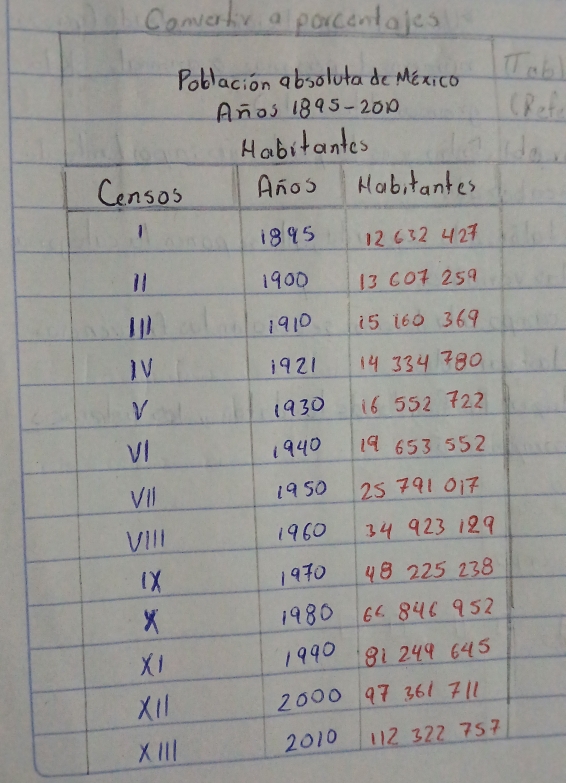 Convertir a porcentajes
Población absoluta de México
Años 1895-2010
Habitantes
Censos Años Habitantes
I 1895 12 632 427
II 1900 13 607 259
III 1910 15 160 369
IV 1921 14 334 780
V 1930 16 552 722
VI 1940 19 653 552
VII 1950 25 791 017
VIII 1960 34 923 129
IX 1970 48 225 238
X 1980 66 846 952
XI 1990 81 249 645
XII 2000 97 361 711
XIII 2010 112 322 757